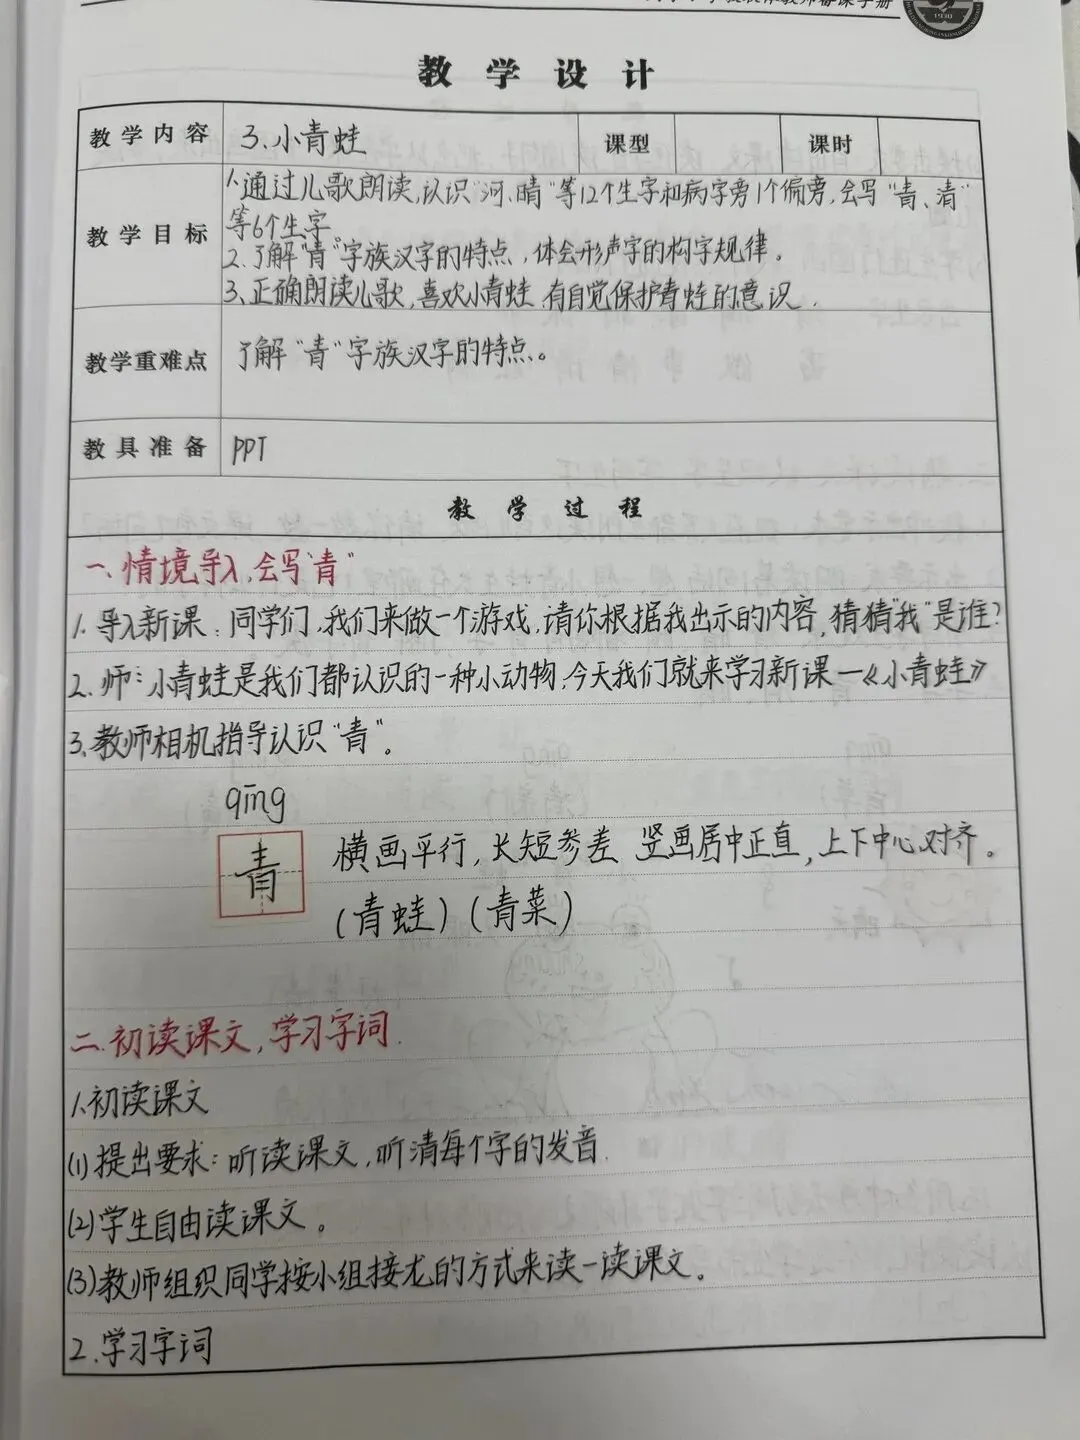 教师备课手册
1930
教学设计
教学内容 3.小青蛙 课型 课时
教学目标
1.通过儿歌朗读,认识"河、晴"等12个生字和病字旁1个偏旁,会写"青、清"
等6个生字。
2.了解"青"字族汉字的特点,体会形声字的构字规律。
3、正确朗读儿歌,喜欢小青蛙,有自觉保护青蛙的意识.
教学重难点 了解"青"字族汉字的特点、。
教具准备 PPT
教学过程
一、情境导入,会写"青"
1.导入新课:同学们,我们来做一个游戏,请你根据我出示的内容,猜猜"我"是谁?
2.师:小青蛙是我们都认识的一种小动物.今天我们就来学习新课—《小青蛙》
3.教师相机指导认识"青"。
qīng
青 横画平行,长短参差 竖画居中正直,上下中心对齐。
(青蛙)(青菜)
二.初读课文,学习字词.
1.初读课文
(1)提出要求:听读课文,听清每个字的发音.
(2)学生自由读课文。
(3)教师组织同学按小组接龙的方式来读一读课文。
2.学习字词